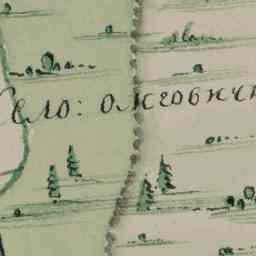 Село: ожговичи